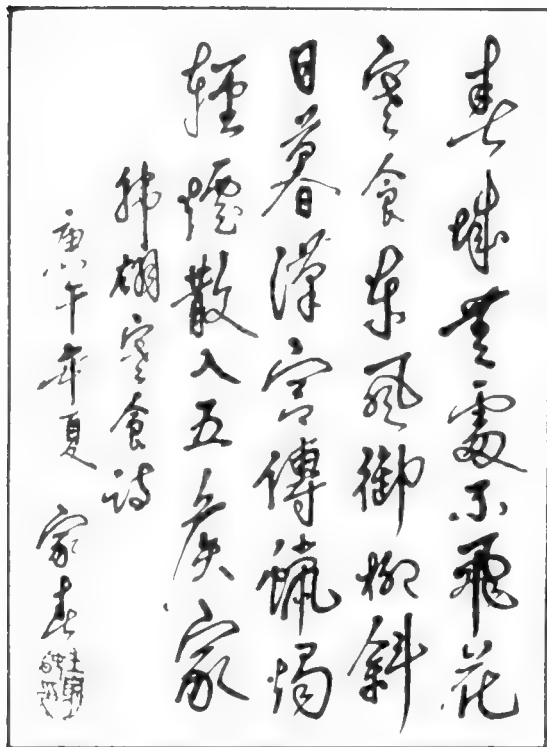 春城無處不飛花
寒食東風御柳斜
日暮漢宮傳蠟燭
輕煙散入五侯家
韩翃寒食詩
庚午年夏 家春